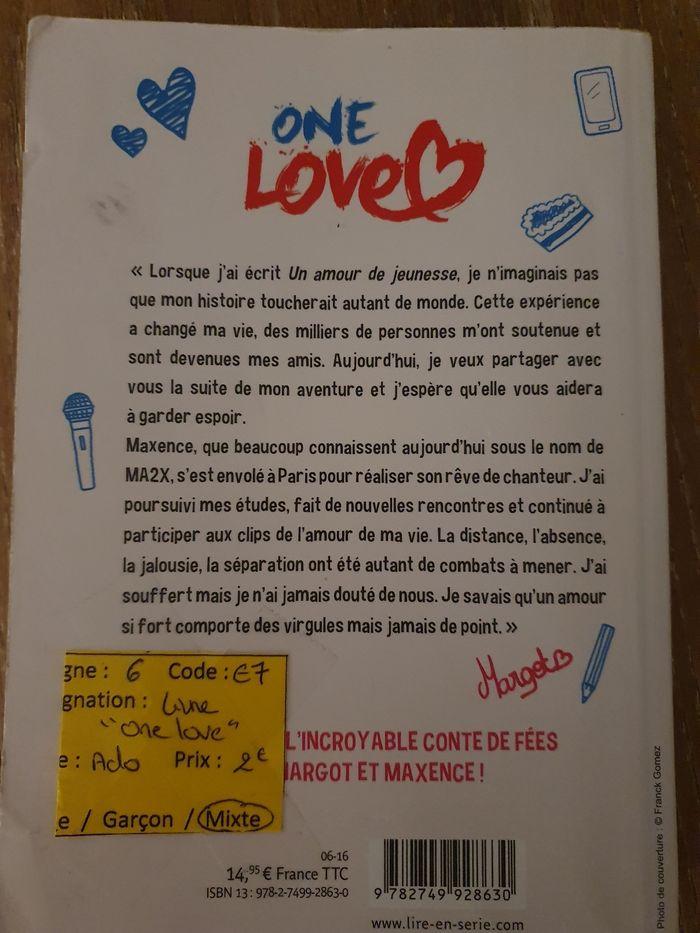 ONE
LOVE
« Lorsque j'ai écrit Un amour de jeunesse, je n'imaginais pas
que mon histoire toucherait autant de monde. Cette expérience
a changé ma vie, des milliers de personnes m'ont soutenue et
sont devenues mes amis. Aujourd'hui, je veux partager avec
vous la suite de mon aventure et j'espère qu'elle vous aidera
à garder espoir.
Maxence, que beaucoup connaissent aujourd'hui sous le nom de
MA2X, s'est envolé à Paris pour réaliser son rêve de chanteur. J'ai
poursuivi mes études, fait de nouvelles rencontres et continué à
participer aux clips de l'amour de ma vie. La distance, l'absence,
la jalousie, la séparation ont été autant de combats à mener. J'ai
souffert mais je n'ai jamais douté de nous. Je savais qu'un amour
si fort comporte des virgules mais jamais de point. »
Margot
gne : 6 Code : E7
gnation : Livre
"One love"
e : Ado Prix : 2€
e / Garçon / Mixte
L'INCROYABLE CONTE DE FÉES
MARGOT ET MAXENCE !
06-16
14,95 € France TTC
ISBN 13 : 978-2-7499-2863-0
9 782749 928630
www.lire-en-serie.com
Photo de couverture : © Franck Gomez